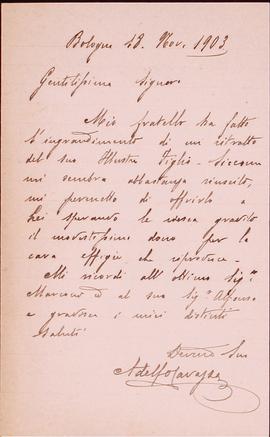 Bologna 28. Nov. 1903
Gentilissima Signora
Mio fratello ha fatto
l'ingrandimento di un ritratto
del suo Illustre Figlio - Siccome
mi sembra abbastanza riuscito,
mi permetto di offrirlo a
Lei sperando le riesca gradito
il modestissimo dono per la
cara effigie che riproduce -
Mi ricordi all'ottimo Sig.r
Marconi ed al suo Sig.r Alfonso
e gradisca i miei distinti
saluti
Devmo Suo
Adelfo Cavazza